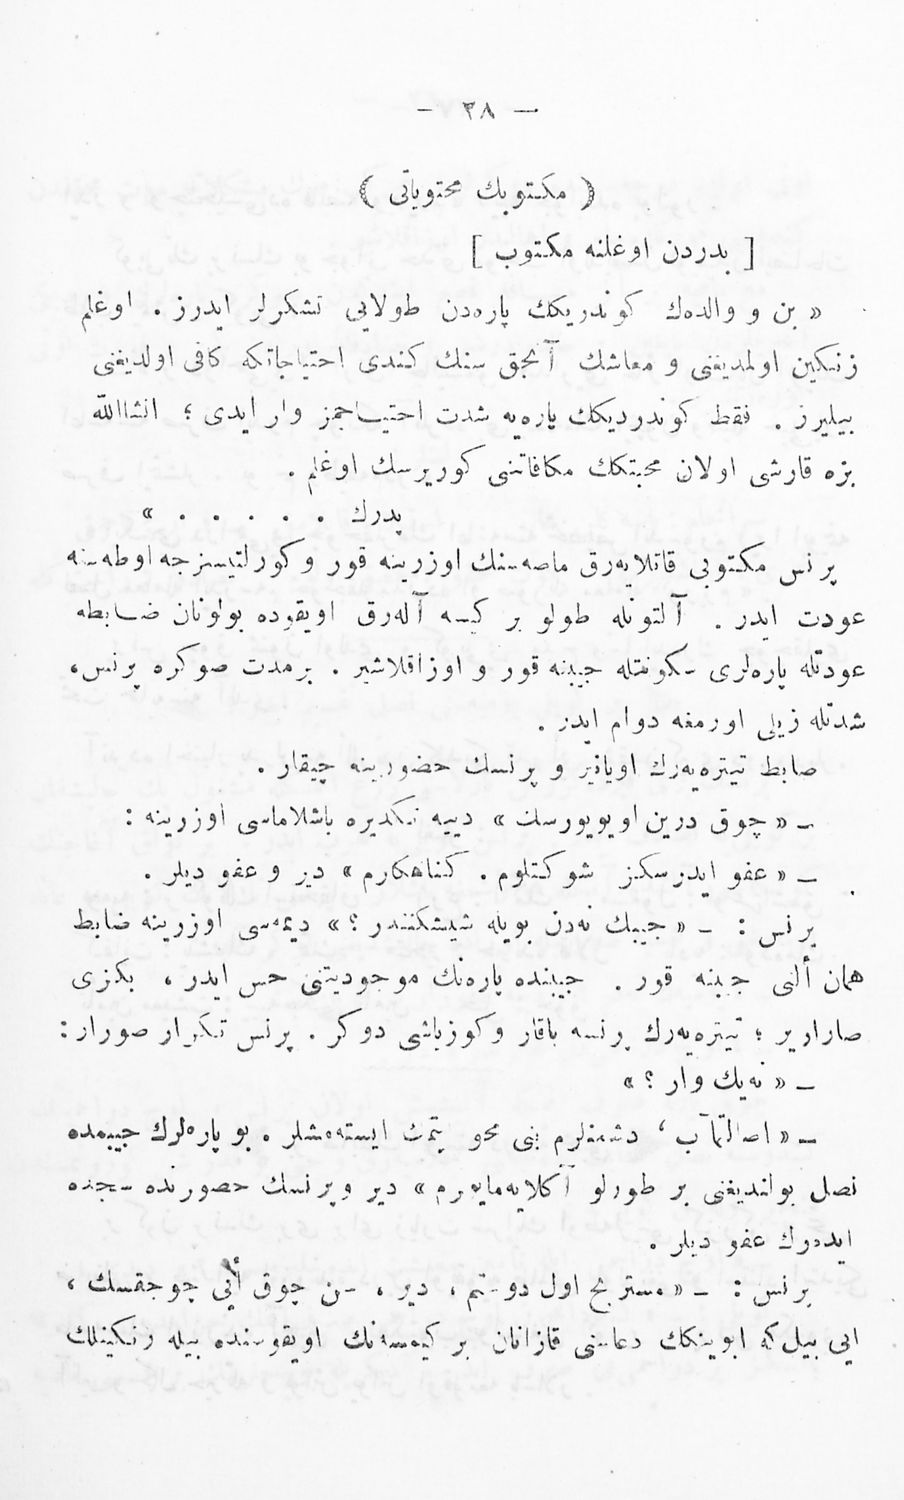 — ٣٨ —
﴿ مكتوبك محتوياتى ﴾
[ پدردن اوغلنه مكتوب ]
« بن و والده‌ك كوندريكك پاره‌دن طولايى تشكرلر ايدرز . اوغلم
زنكين اولمديغنى و معاشك آنجق سنك كندى احتياجاتكه كافى اولديغنى
بيليرز . فقط كوندرديكك پاره‌يه شدت احتياجمز وار ايدى ؛ انشاالله
بزه قارشى اولان محبتكك مكافاتنى كوريرسك اوغلم .
پدرك . . . . . »
پرنس مكتوبى قاتلايه‌رق ماصه‌سنك اوزرينه قور و كورلتيسزجه اوطه‌سنه
عودت ايدر . آلتونله طولو بر كيسه آله‌رق اويقوده بولونان ضابطه
عودتله پاره‌لرى سكونتله جيبنه قور و اوزاقلاشير . برمدت صوكره پرنس،
شدتله زيلى اورمغه دوام ايدر .
ضابط تيتره‌يه‌رك اويانير و پرنسك حضورينه چيقار .
ـ « چوق درين اويويورسك » دييه تكديره باشلاماسى اوزرينه :
ـ « عفو ايدرسكز شوكتلوم . كناهكارم » دير و عفو ديلر .
پرنس : ـ « جيبك نه‌دن بويله شيشكنندر ؟ » ديمه‌سى اوزرينه ضابط
همان ألنى جيبنه قور . جيبنده پاره‌نك موجوديتنى حس ايدر ، بكزى
صاراريير ؛ تيتره‌يه‌رك پرنسه باقار و كوزياشى دوكر . پرنس تكرار صورار :
ـ « نه‌يك وار ؟ »
ـ « اصالتمآب ، دشمنلرم بنى محو ايتمك ايسته‌مشلر . بو پاره‌لرك جيبمده
نصل بولنديغنى بر طورلو آكلايه‌مايورم » دير و پرنسك حضورنده سجده
ايده‌رك عفو ديلر .
پرنس : ـ « مستريح اول دوستم ، دير ، سن چوق أيى چوجقسك ،
ايى بيل كه ابوينكك دعاسنى قازانان بر كيمسه‌نك اويقوسنده بيله زنكينلك